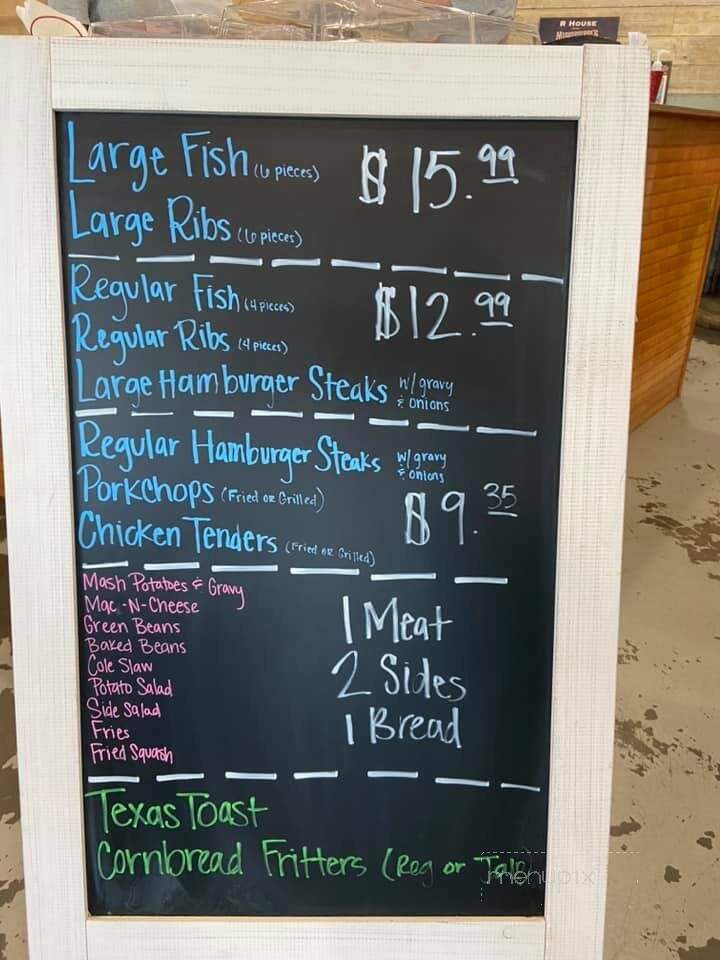 R HOUSE
Large Fish (6 pieces) $15.99
Large Ribs (6 pieces)
Regular Fish (4 pieces) $12.99
Regular Ribs (4 pieces)
Large Hamburger Steaks w/ gravy & onions
Regular Hamburger Steaks w/ gravy & onions
Porkchops (Fried or Grilled) $9.35
Chicken Tenders (Fried or Grilled)
Mash Potatoes & Gravy
Mac-N-Cheese
Green Beans
Baked Beans
Cole Slaw
Potato Salad
Side Salad
Fries
Fried Squash
1 Meat
2 Sides
1 Bread
Texas Toast
Cornbread Fritters (Reg or
menupix